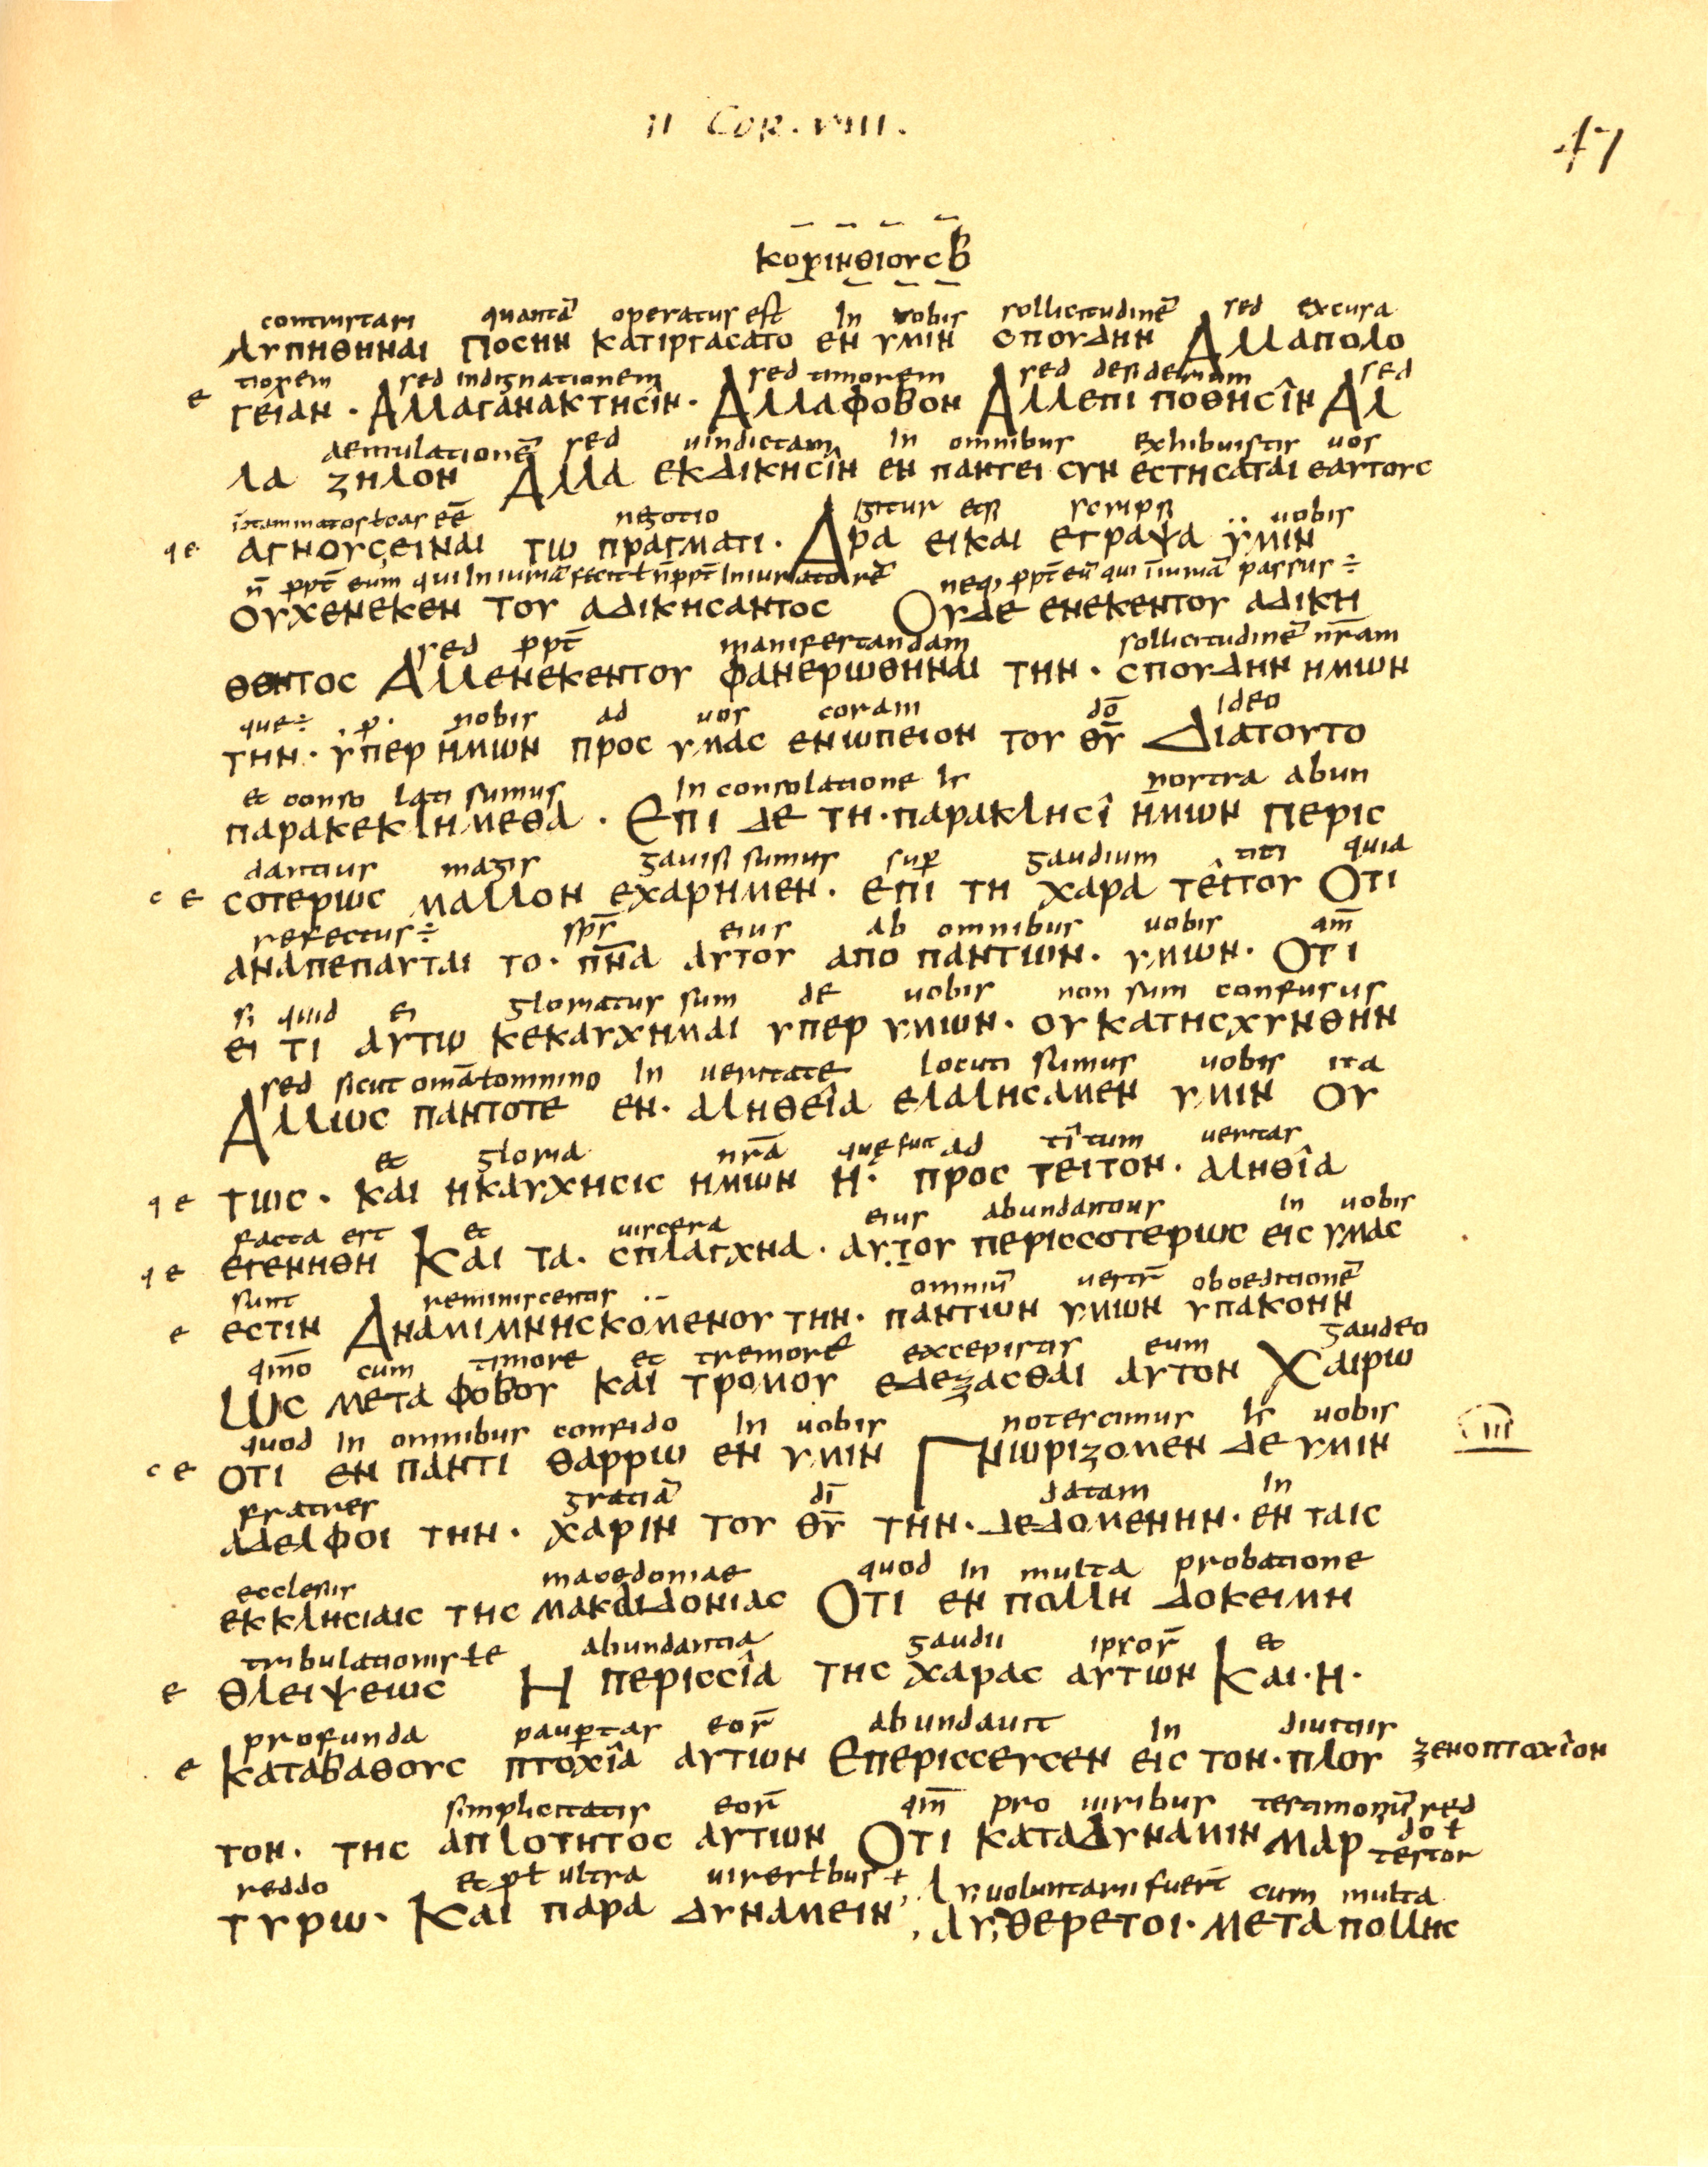 II COR. VIII.
47
κορινθιουςβ
contristari quantā operatus est In vobis sollicitudinē sed excusa
λυπηθηναι Ποσην κατιργασατο εν υμιν σπουδην Αλλαπολο
tionem sed indignationem sed timorem sed desiderium sed
ε γειαν · Αλλαγανακτησιν · Αλλαφοβον Αλλεπι ποθησιν Αλ
aemulationē sed uindictam In omnibus exhibuistis uos
λα ζηλον Αλλα εκδικησιν εν παντει συν εστησαται εαυτους
negotio igitur etsi scripsi uobis
αγνουςειναι τω πραγματι · Αρα ει και εγραψα υμιν
ουχενεκεν του αδικησαντος Ουδε ενεκεντου αδικη
sed ꝓpt̄ manifestandam sollicitudinē nr̄am
θεντος Αλλενεκεντου φανερωθηναι την · σπουδην ημων
que÷ ꝓ · nobis ad uos coram dō Ideo
την · υπερ ημων προς υμας ενωπειον του θ̄ῡ Διατουτο
et conso lati sumus In consolatione Is nostra abun
παρακεκλημεθα · Επι δε τη · παρακλησι ημων Περισ
dantius magis gauisi sumus suꝑ gaudium titi quia
c ε σοτερως μαλλον εχαρημεν · επι τη χαρα τειτου Οτι
refectus÷ sp̄s eius ab omnibus uobis qm̄
αναπεπαυται το · π̄ν̄ᾱ αυτου απο παντων · υμων · Οτι
si quid ei gloriatus sum de uobis non sum confusus
ει τι αυτω κεκαυχημαι υπερ υμων · ου κατησχυνθην
sed sicut omāłomnino In ueritate locuti sumus uobis ita
Αλλως παντοτε εν · αληθεια ελαλησαμεν υμιν ου
et gloria nr̄a quę fuit ad titum ueritas
q ε τως · και ηκαυχησις ημων Η · προς τειτον · αληθια
facta est et uiscera eius abundantius In uobis
q ε εγενηθη Και τα · σπλαγχνα · αυτου περισσοτερως εις υμας
sunt reminiscentis omniū uestr̄ oboeditionē
ε εστιν Αναμιμνησκομενου την · παντων υμων υπακοην
qm̄o cum timore et tremore excepistis eum gaudeo
Ως μετα φοβου και τρομου εδεξασθαι αυτον Χαιρω
quod In omnibus confido In uobis notescimus Is uobis
c ε οτι εν παντι θαρρω εν υμιν Γνωριζομεν δε υμιν
III
fratres gratiā dī datam In
αδελφοι την · χαριν του θ̄ῡ την · δεδομενην · εν ταις
ecclesiis macedoniae quod In multa probatione
εκκλησιαις της μακαιδονιας Οτι εν πολλη δοκειμη
tribulationisłe abundantia gaudii ipsor̄ et
ε θλειψεως Η περισσια της χαρας αυτων Και · η ·
profunda pauꝑtas eor̄ abundauit In diuitiis
ε καταβαθους πτοχια αυτων Επερισσευσεν εις τον · πλου ξενοπτωχιον
simplicitatis eor̄ qm̄ pro uiribus testimoniū red
τον · της απλοτητος αυτων Οτι καταΔυναμιν μαρ
do ł testor
reddo et ꝓł ultra uiresłbus ł Is uoluntarii fuer̄ cum multa
τυρω · Και παρα δυναμειν Αυθερετοι · μετα πολλης